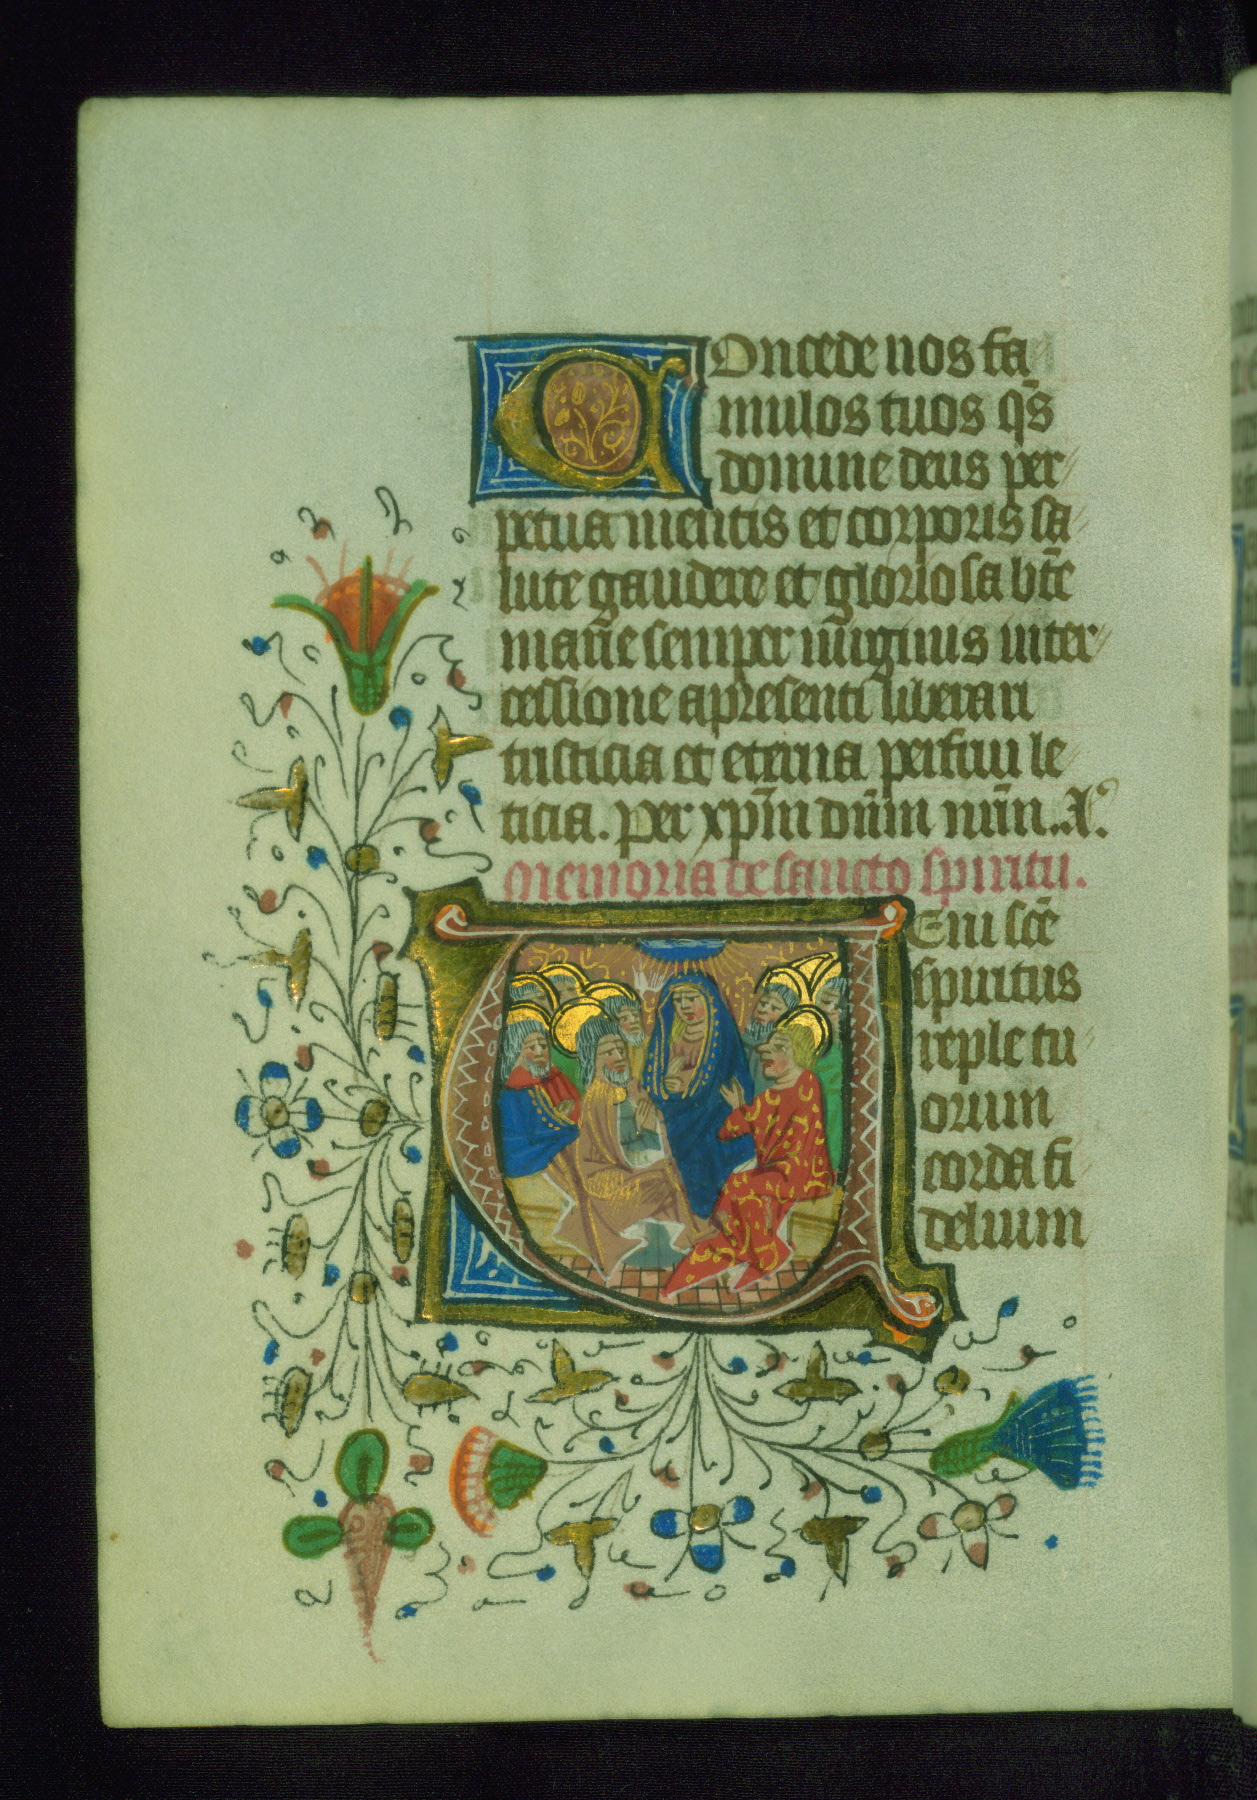 Concede nos fa
mulos tuos q̄s
domine deus per
petua mentis et corporis sa
lute gaudere et gloriosa bt̄e
marīe semper uīrginis inter
cessione a presenti liberari
tristicia et eterna perfrui le
ticia. Per xp̄m dn̄m nr̄m. A.
Memoria de sancto spiritu.
Veni sc̄e
spiritus
reple tu
orum
corda fi
delium